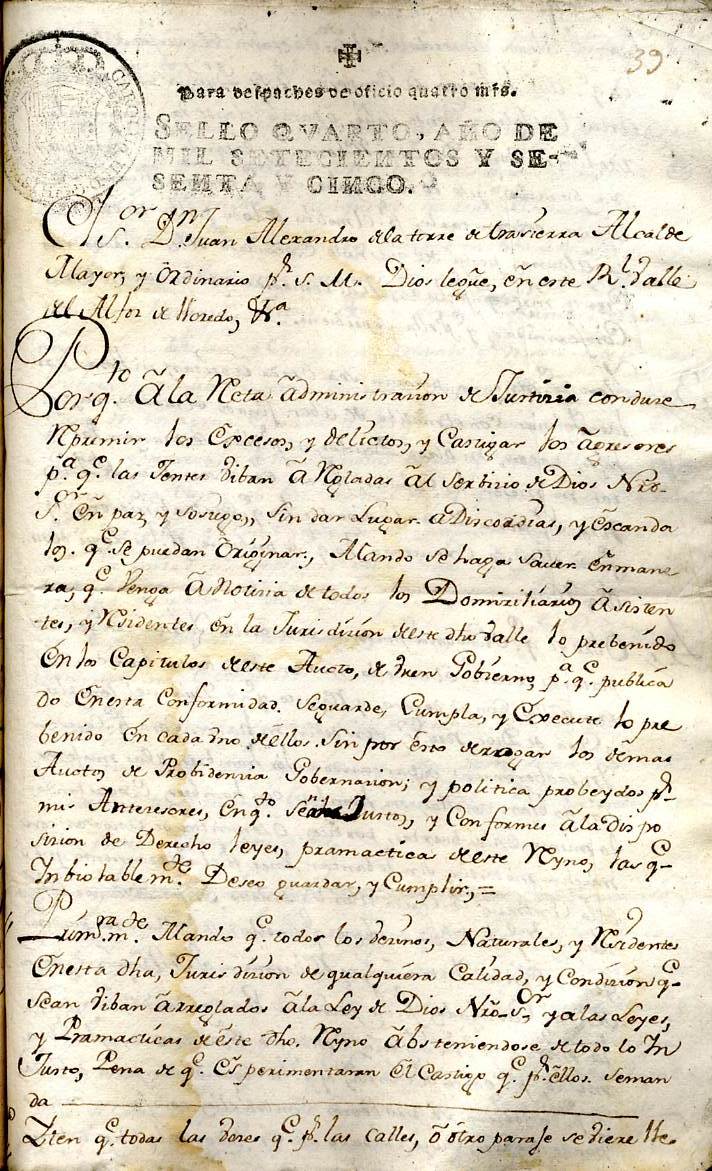 39
Para despachos de oficio quatro mrs.
SELLO QVARTO, AÑO DE
MIL SETECIENTOS Y SE-
SENTA Y CINCO.
CAROL
S.or Dn. Juan Alexandro de la torre de trasierra Alcalde
Mayor, y Ordinario pr. S. M. Dios le gue, en este Rl. Valle
del Alfoz de Lloredo, &a.
Por q.to a la Recta administracion de Justicia conduce
Reprimir los Excesos, y delictos, y Castigar los agresores
pa. qe. las Jentes viban a Regladas al Serbicio de Dios Nro.
S.or en paz, y Sosiego, sin dar Lugar a Discordias, y escanda
los. qe. se puedan Originar, Mando se haga saver en mane
ra, qe. Venga a Noticia de todos los Domiziliarios asisten
tes, y Residentes en la Jurisdicion de este dho Valle lo prebenido
en los Capitulos de este Aucto, de buen Gobierno, pa. qe. publica
do en esta Conformidad. Se guarde, Cumpla, y Execute lo pre
benido en cada uno de ellos. Sin por esto derrogar los demas
Auctos de Probidencia Gobernacion; y politica probeydos pr.
mis Antecesores, en q.to Sean Justos, y Conformes a la dispo
sicion de Derecho leyes, pramacticas de este Reyno, las qe.
Inbiolablem.te Deseo guardar, y Cumplir, =
Primeram.te Mando qe. todos los vezinos, Naturales, y Residentes
en esta dha, Jurisdicion de qualquiera Calidad, y Condicion qe.
sean viban arreglados a la Ley de Dios Nro. S.or y a las Leyes,
y Pramacticas de este dho. Reyno absteniendose de todo lo In
Justo, Pena de qe. Esperimentaran el Castigo qe. pr. ellos. se man
da
Iten qe. todas las vezes qe. pr. las calles, o otro paraje se viere lle